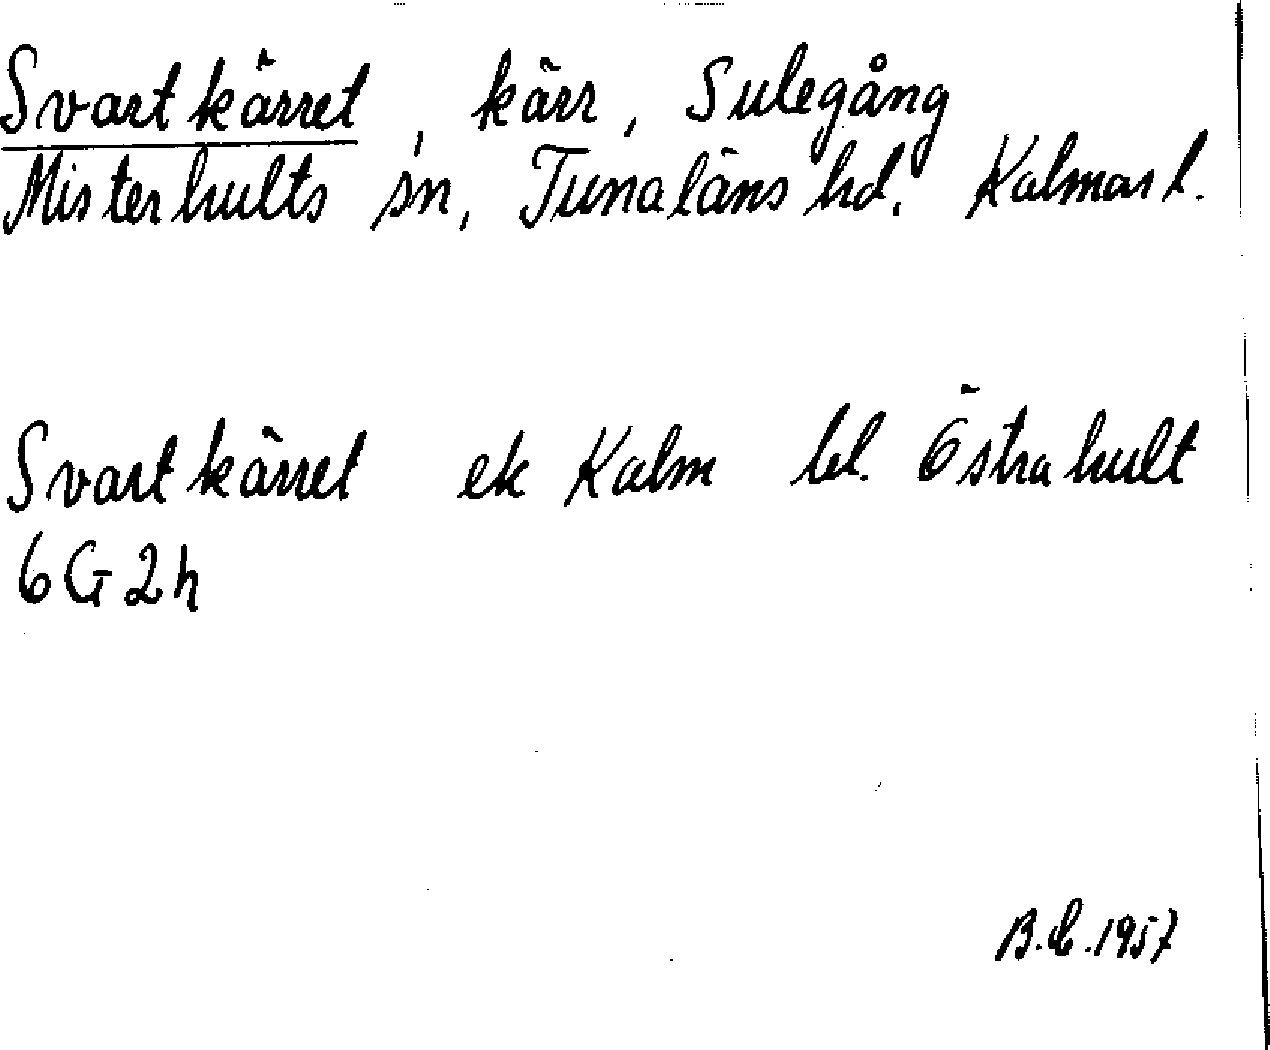 Svartkärret, kärr, Sulegång
Misterhults sn, Tunaläns hd. Kalmar l.
Svartkärret ek Kalm bl. Östrahult
6G2h
1957